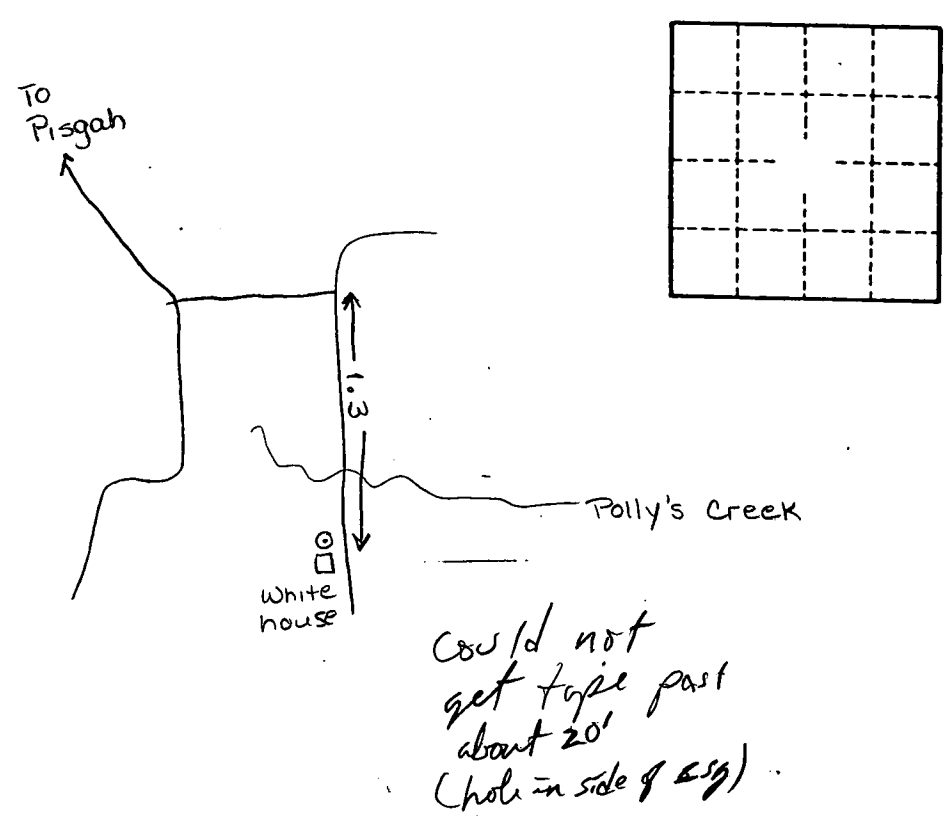 To
Pisgah
1.3
Polly's Creek
White
house
Could not
get tape past
about 20'
(hole in side of csg)